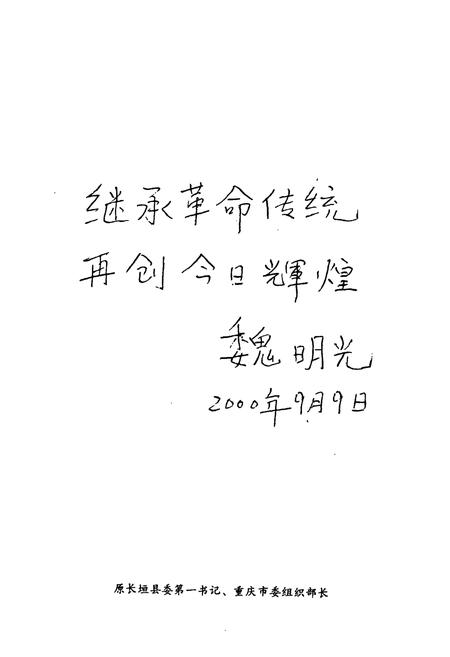 继承革命传统
再创今日辉煌
魏明光
2000年9月9日
原长垣县委第一书记、重庆市委组织部长